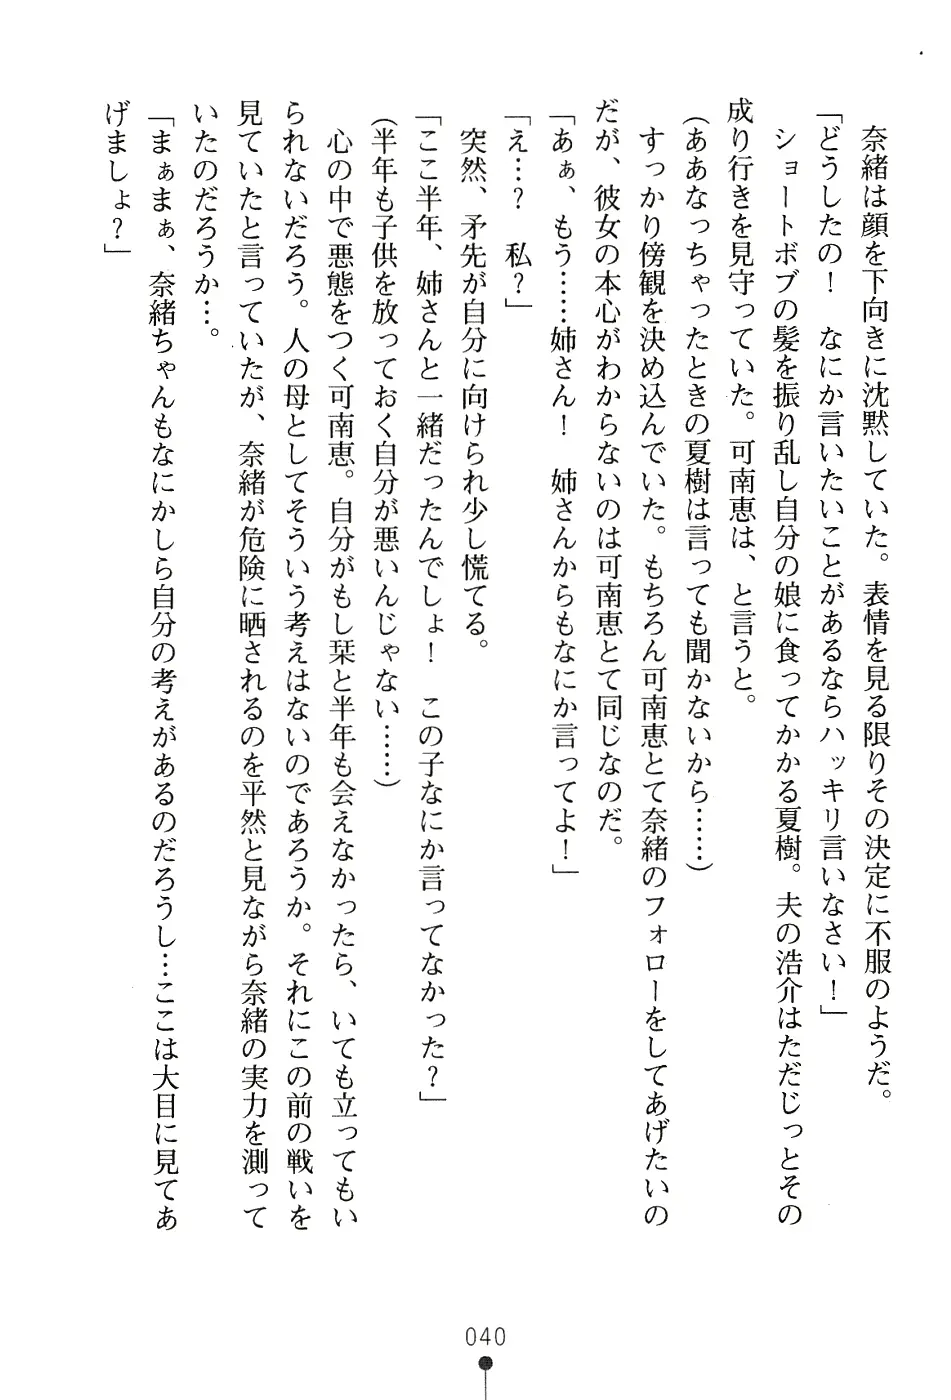 奈緒は顔を下向きに沈黙していた。表情を見る限りその決定に不服のようだ。
「どうしたの！　なにか言いたいことがあるならハッキリ言いなさい！」
　ショートボブの髪を振り乱し自分の娘に食ってかかる夏樹。夫の浩介はただじっとその
成り行きを見守っていた。可南恵は、と言うと。
（ああなっちゃったときの夏樹は言っても聞かないから……）
　すっかり傍観を決め込んでいた。もちろん可南恵とて奈緒のフォローをしてあげたいの
だが、彼女の本心がわからないのは可南恵とて同じなのだ。
「あぁ、もう……姉さん！　姉さんからもなにか言ってよ！」
「え…？　私？」
　突然、矛先が自分に向けられ少し慌てる。
「ここ半年、姉さんと一緒だったんでしょ！　この子なにか言ってなかった？」
（半年も子供を放っておく自分が悪いんじゃない……）
　心の中で悪態をつく可南恵。自分がもし栞と半年も会えなかったら、いても立ってもい
られないだろう。人の母としてそういう考えはないのであろうか。それにこの前の戦いを
見ていたと言っていたが、奈緒が危険に晒されるのを平然と見ながら奈緒の実力を測って
いたのだろうか…。
「まぁまぁ、奈緒ちゃんもなにかしら自分の考えがあるのだろうし…ここは大目に見てあ
げましょ？」
040